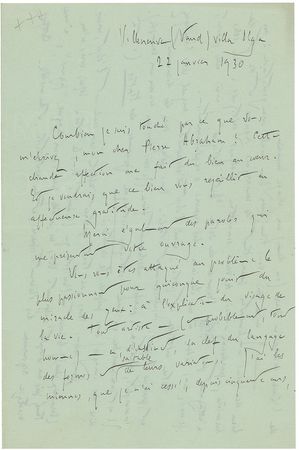 Villeneuve (Vaud) villa Olga
22 janvier 1930.
Combien je suis touché par ce que vous
m'écrivez, mon cher Pierre Abraham! Cette
chaude affection me fait du bien au cœur.
Et je voudrais que ce bien vous rejaillît en
affectueuse gratitude.
Merci également des paroles qui
me présentent votre ouvrage.
Vous vous êtes attaqué au problème le
plus passionnant pour quiconque jouit du
miracle des yeux: à l'explication du visage de
la vie. Tout artiste — (probablement, tout
homme) — a d'abord la clef du langage
des formes, de leurs variations. J'ai les
miennes, que je n'ai cessé, depuis cinquante ans,